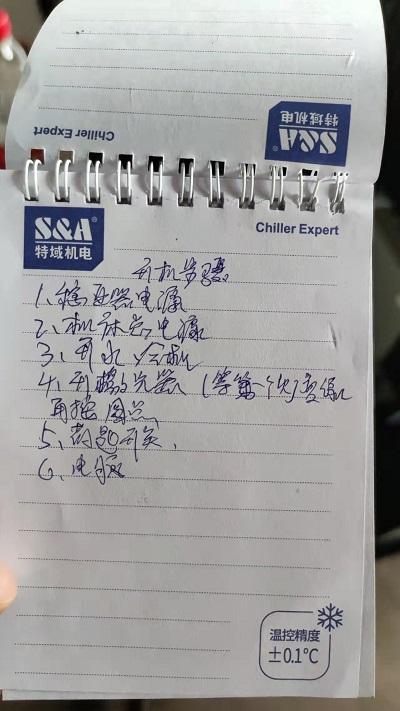 Chiller Expert
S&A®
特域机电
S&A®
特域机电
Chiller Expert
开机步骤
1、稳压器电源
2、机床总电源
3、开水冷机
4、开激光器（等第一个灯变绿
再按圆点
5、钥匙开关、
6、电脑
温控精度
±0.1℃